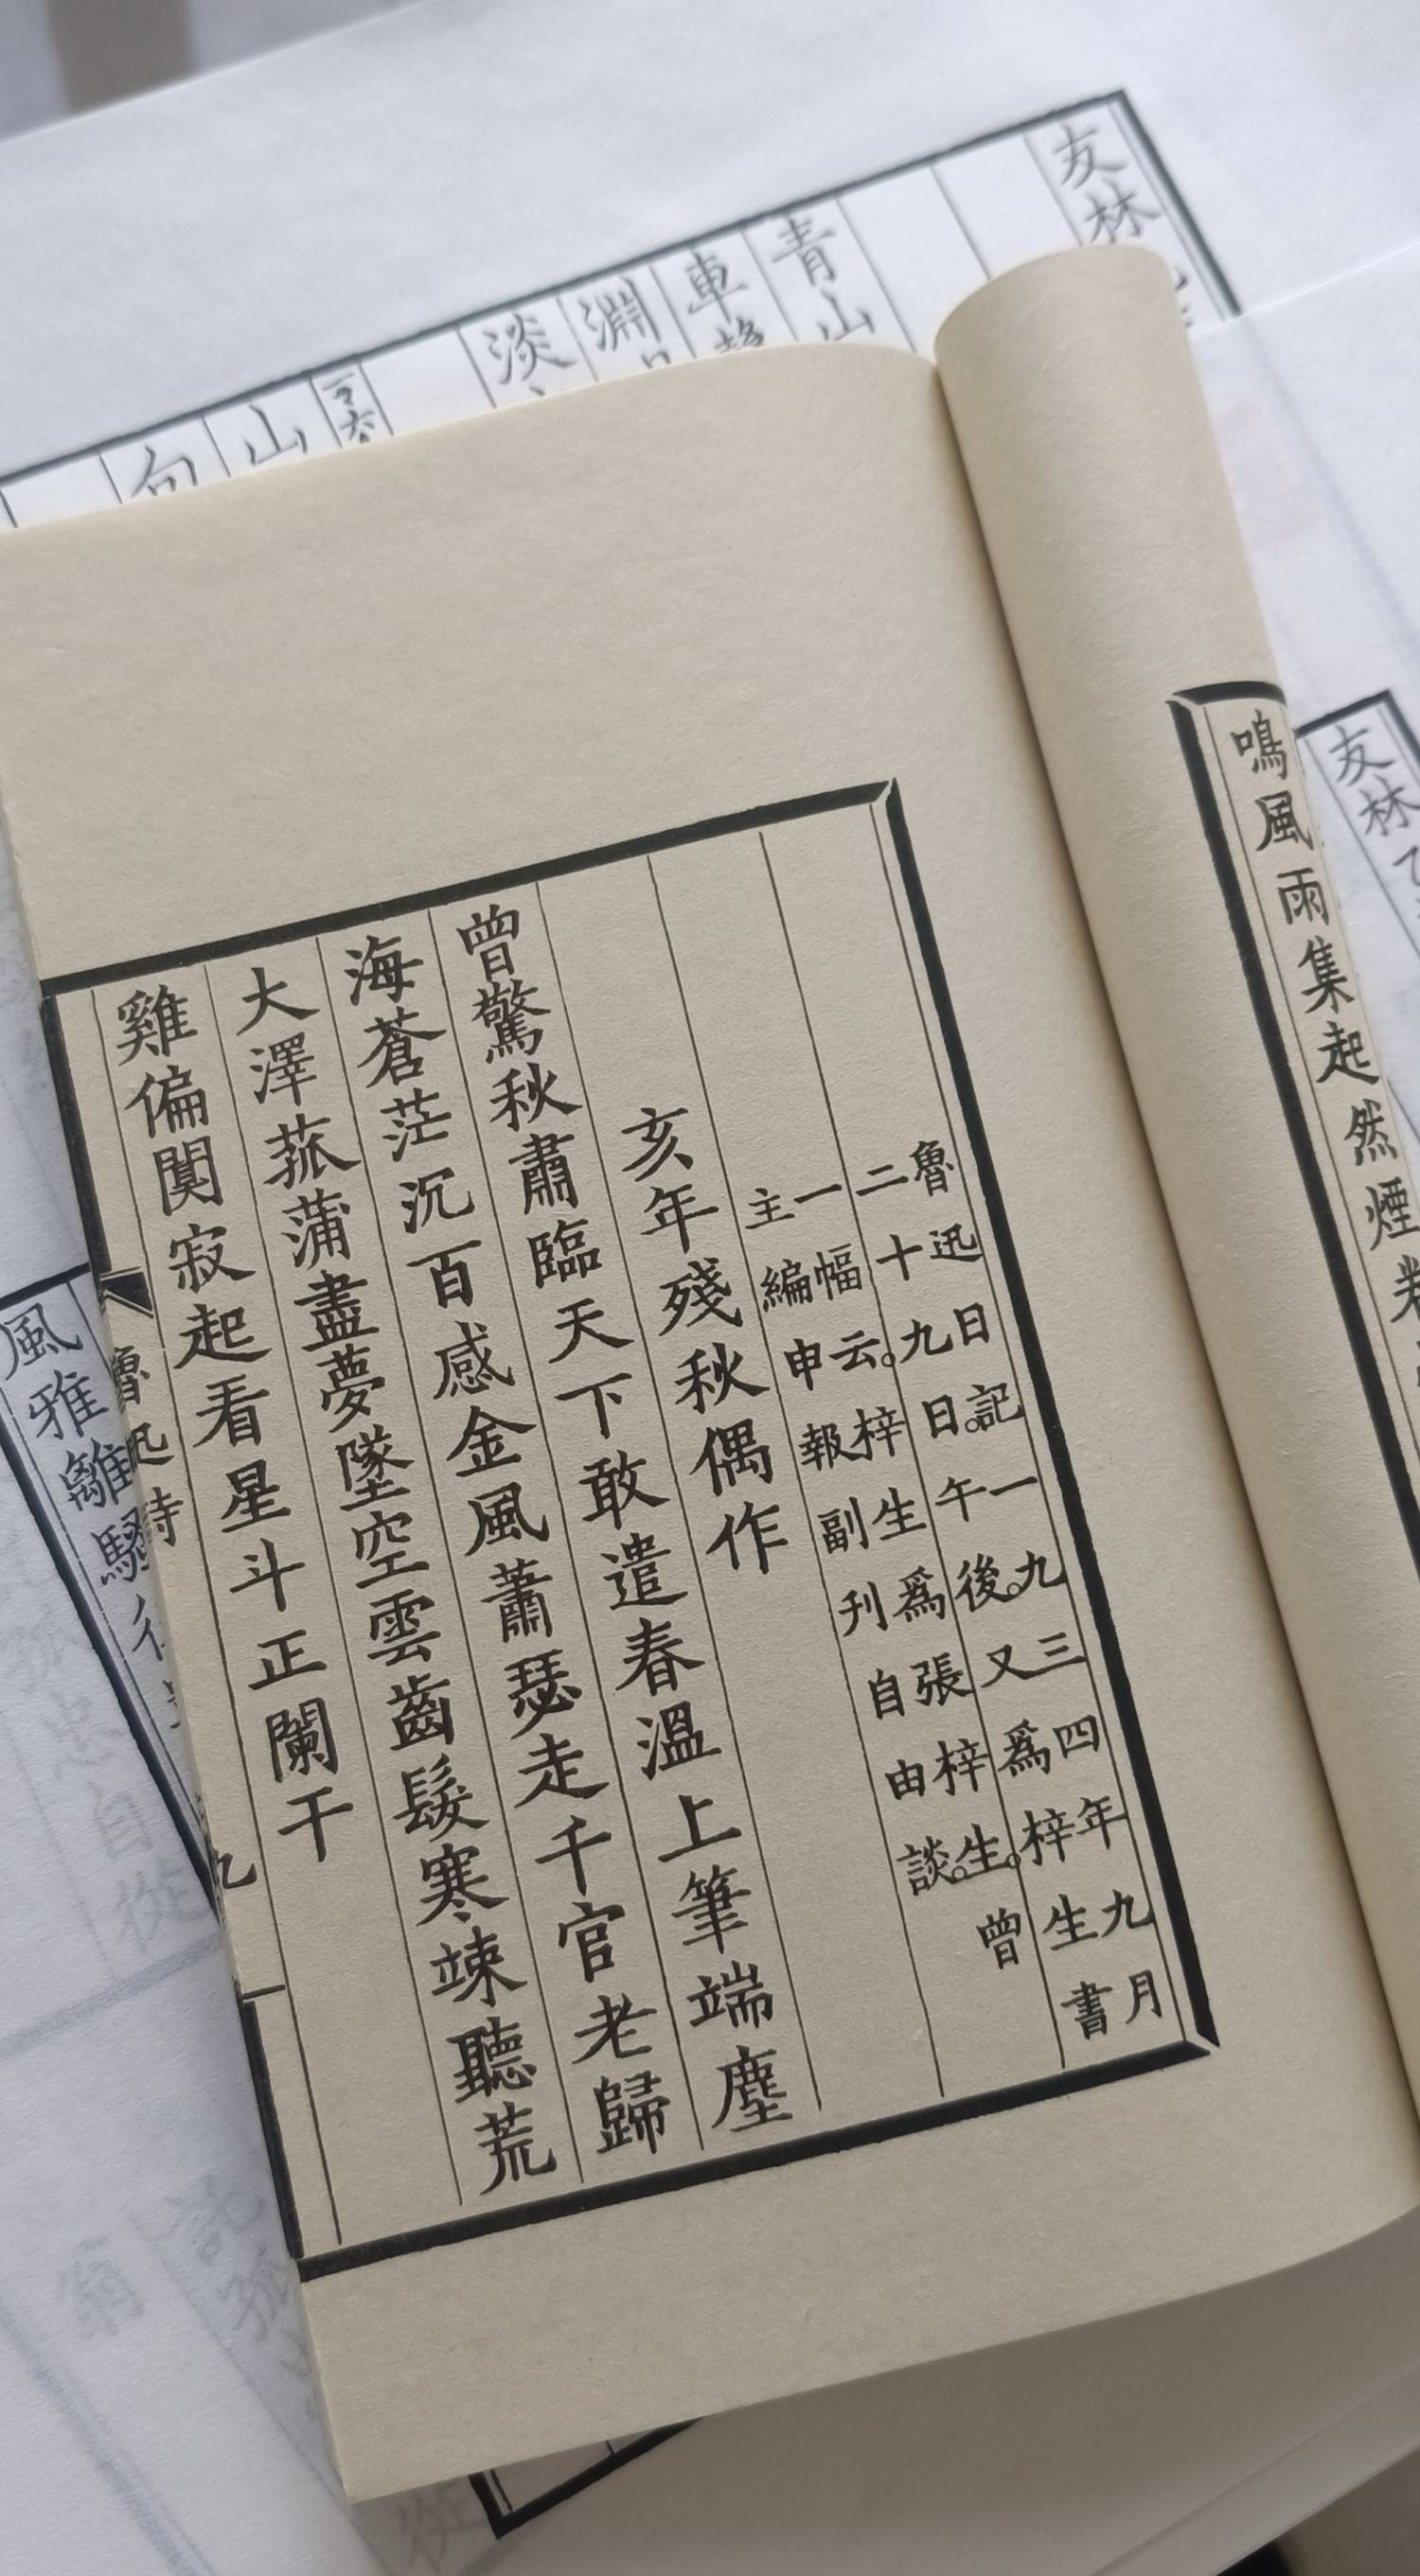 友林
青山
車
淵
淡
山
向
友林
鳴風雨集起然煙
魯迅日記一九三四年九月
二十九日。午後。又爲梓生書
一幅云。梓生爲張梓生。曾
主編申報副刊自由談。
亥年殘秋偶作
曾驚秋肅臨天下敢遣春溫上筆端塵
海蒼茫沉百感金風蕭瑟走千官老歸
大澤菰蒲盡夢墜空雲齒髮寒竦聽荒
雞偏闃寂起看星斗正闌干
魯迅詩
九
風雅離騷